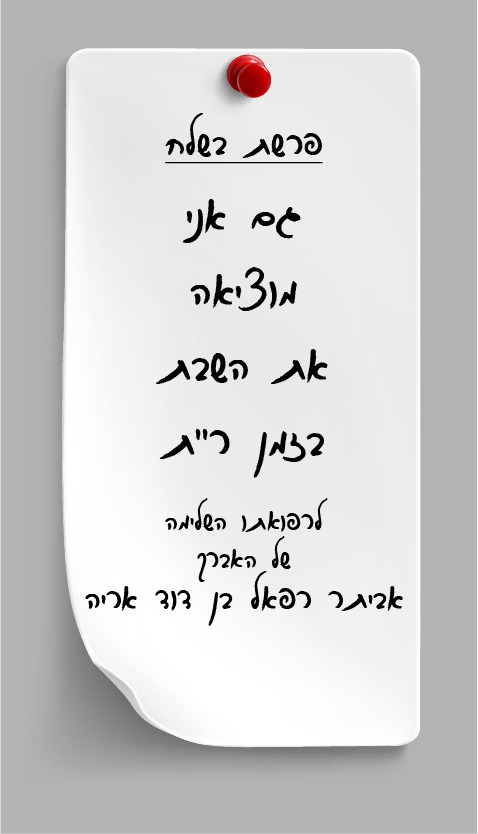 פרשת בשלח
גם אני
מוציאה
את השבת
בזמן ר"ת
לרפואתו השלימה
של האברך
אביתר רפאל בן דוד אריה